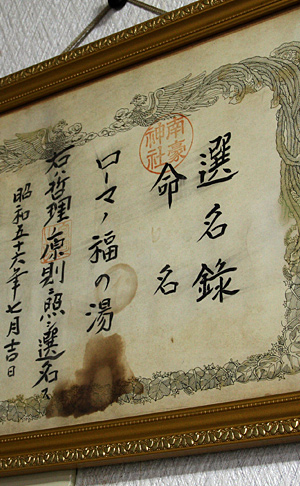 選名錄
南豪神社
命名
ローマノ福の湯
右哲理ノ原則ニ照シ選名ス
昭和五十六年七月吉日